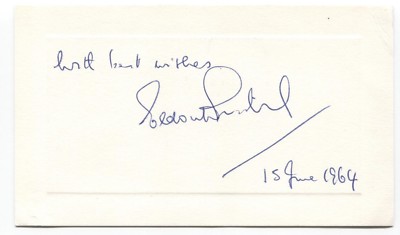 with best wishes
15 June 1964